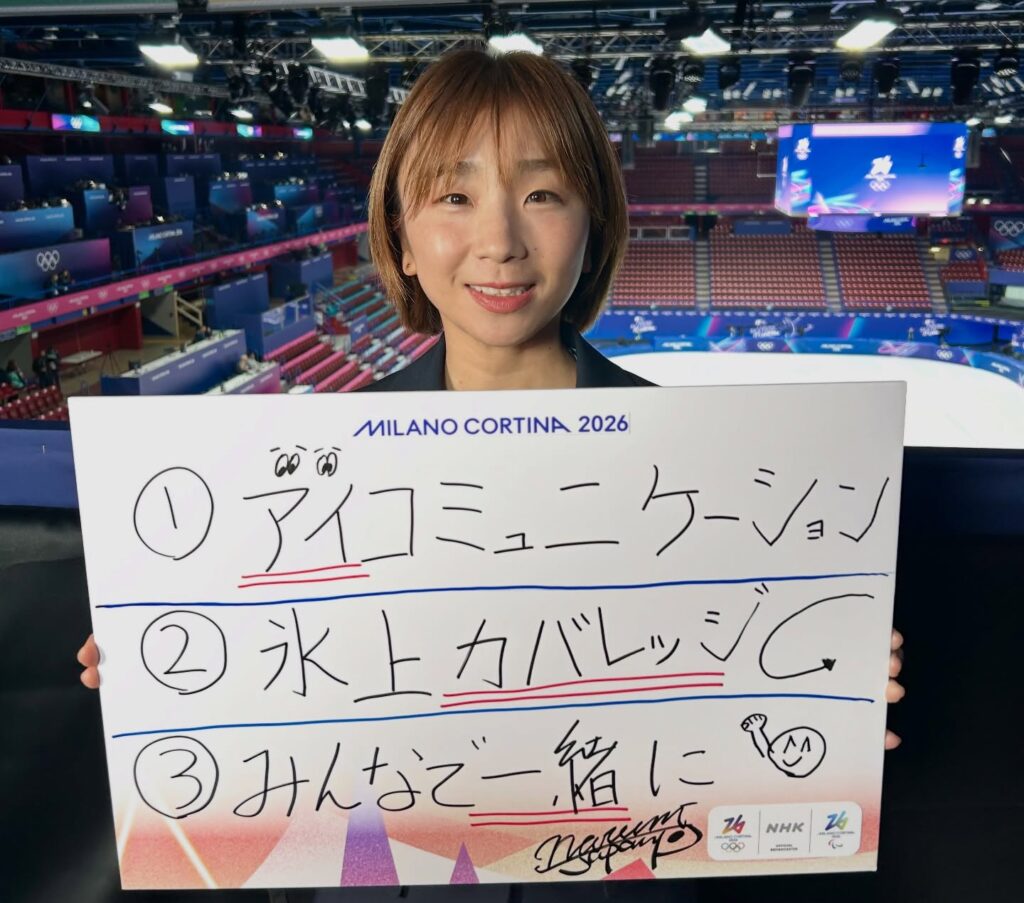 MILANO CORTINA 2026
① アイコミュニケーション
② 氷上カバレッジ
③ みんなで一緒に
NHK
OFFICIAL BROADCASTER